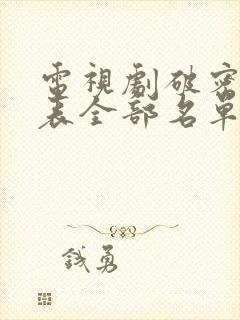 電視劇破密
表全部名單
錢勇